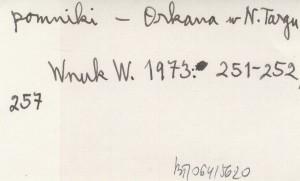 pomniki – Orkana w N. Targu
Wnuk W. 1973: 251-252,
257